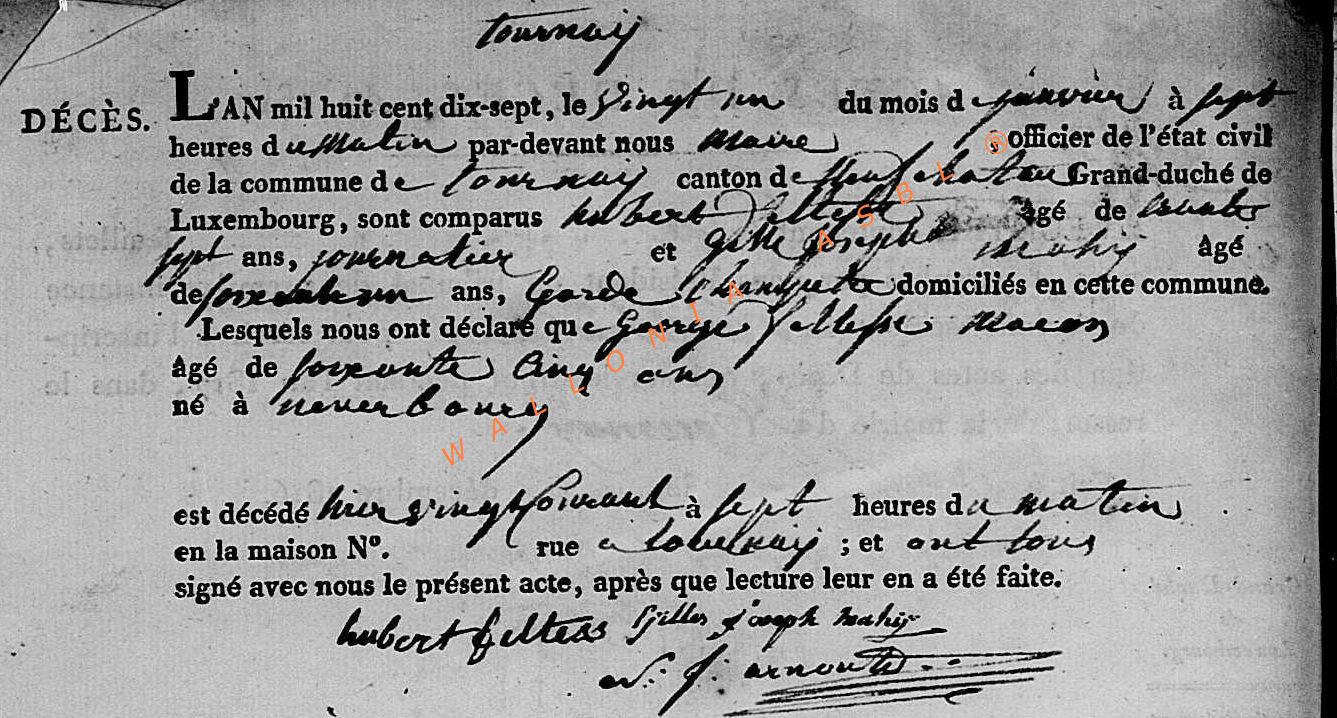 tournay
DÉCÈS. L'AN mil huit cent dix-sept, le vingt un du mois de janvier à sept
heures du matin par-devant nous maire , officier de l'état civil
de la commune de tournay canton de Neufchateau Grand-duché de
Luxembourg, sont comparus hubert feltesse âgé de
sept ans, journalier et Gille joseph mahy âgé
de soixante un ans, Garde Champette domiciliés en cette commune.
Lesquels nous ont déclaré que George feltesse macon
âgé de soixante cinq ans
né à neverbourg
est décédé hier vingt courant à sept heures du matin
en la maison N°. rue a tournay ; et ont tous
signé avec nous le présent acte, après que lecture leur en a été faite.
hubert feltess Gilles joseph mahy
J: arnould
WALLONIA ASBL ®